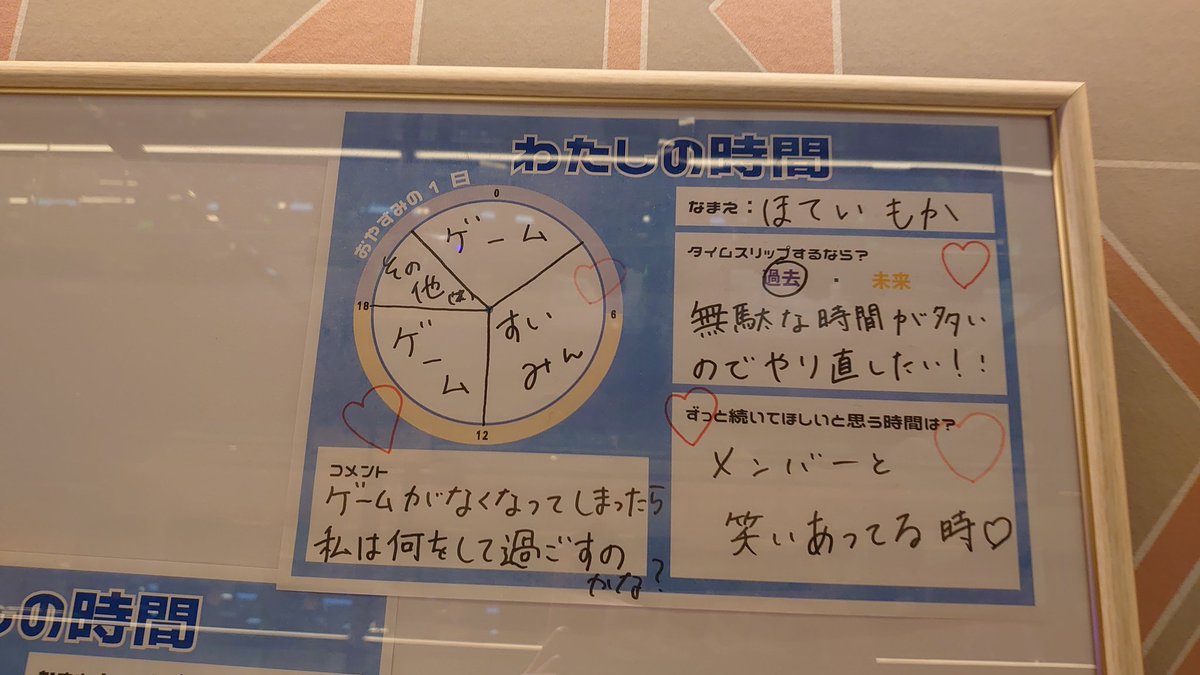 わたしの時間
おやすみの1日
0
6
12
18
ゲーム
すい
みん
ゲーム
その
他
なまえ：ほてい もか
タイムスリップするなら？
過去 ・ 未来
無駄な時間が多い
のでやり直したい！！
ずっと続いてほしいと思う時間は？
メンバーと
笑いあってる時♡
コメント
ゲームがなくなってしまったら
私は何をして過ごすの
かな？
しの時間